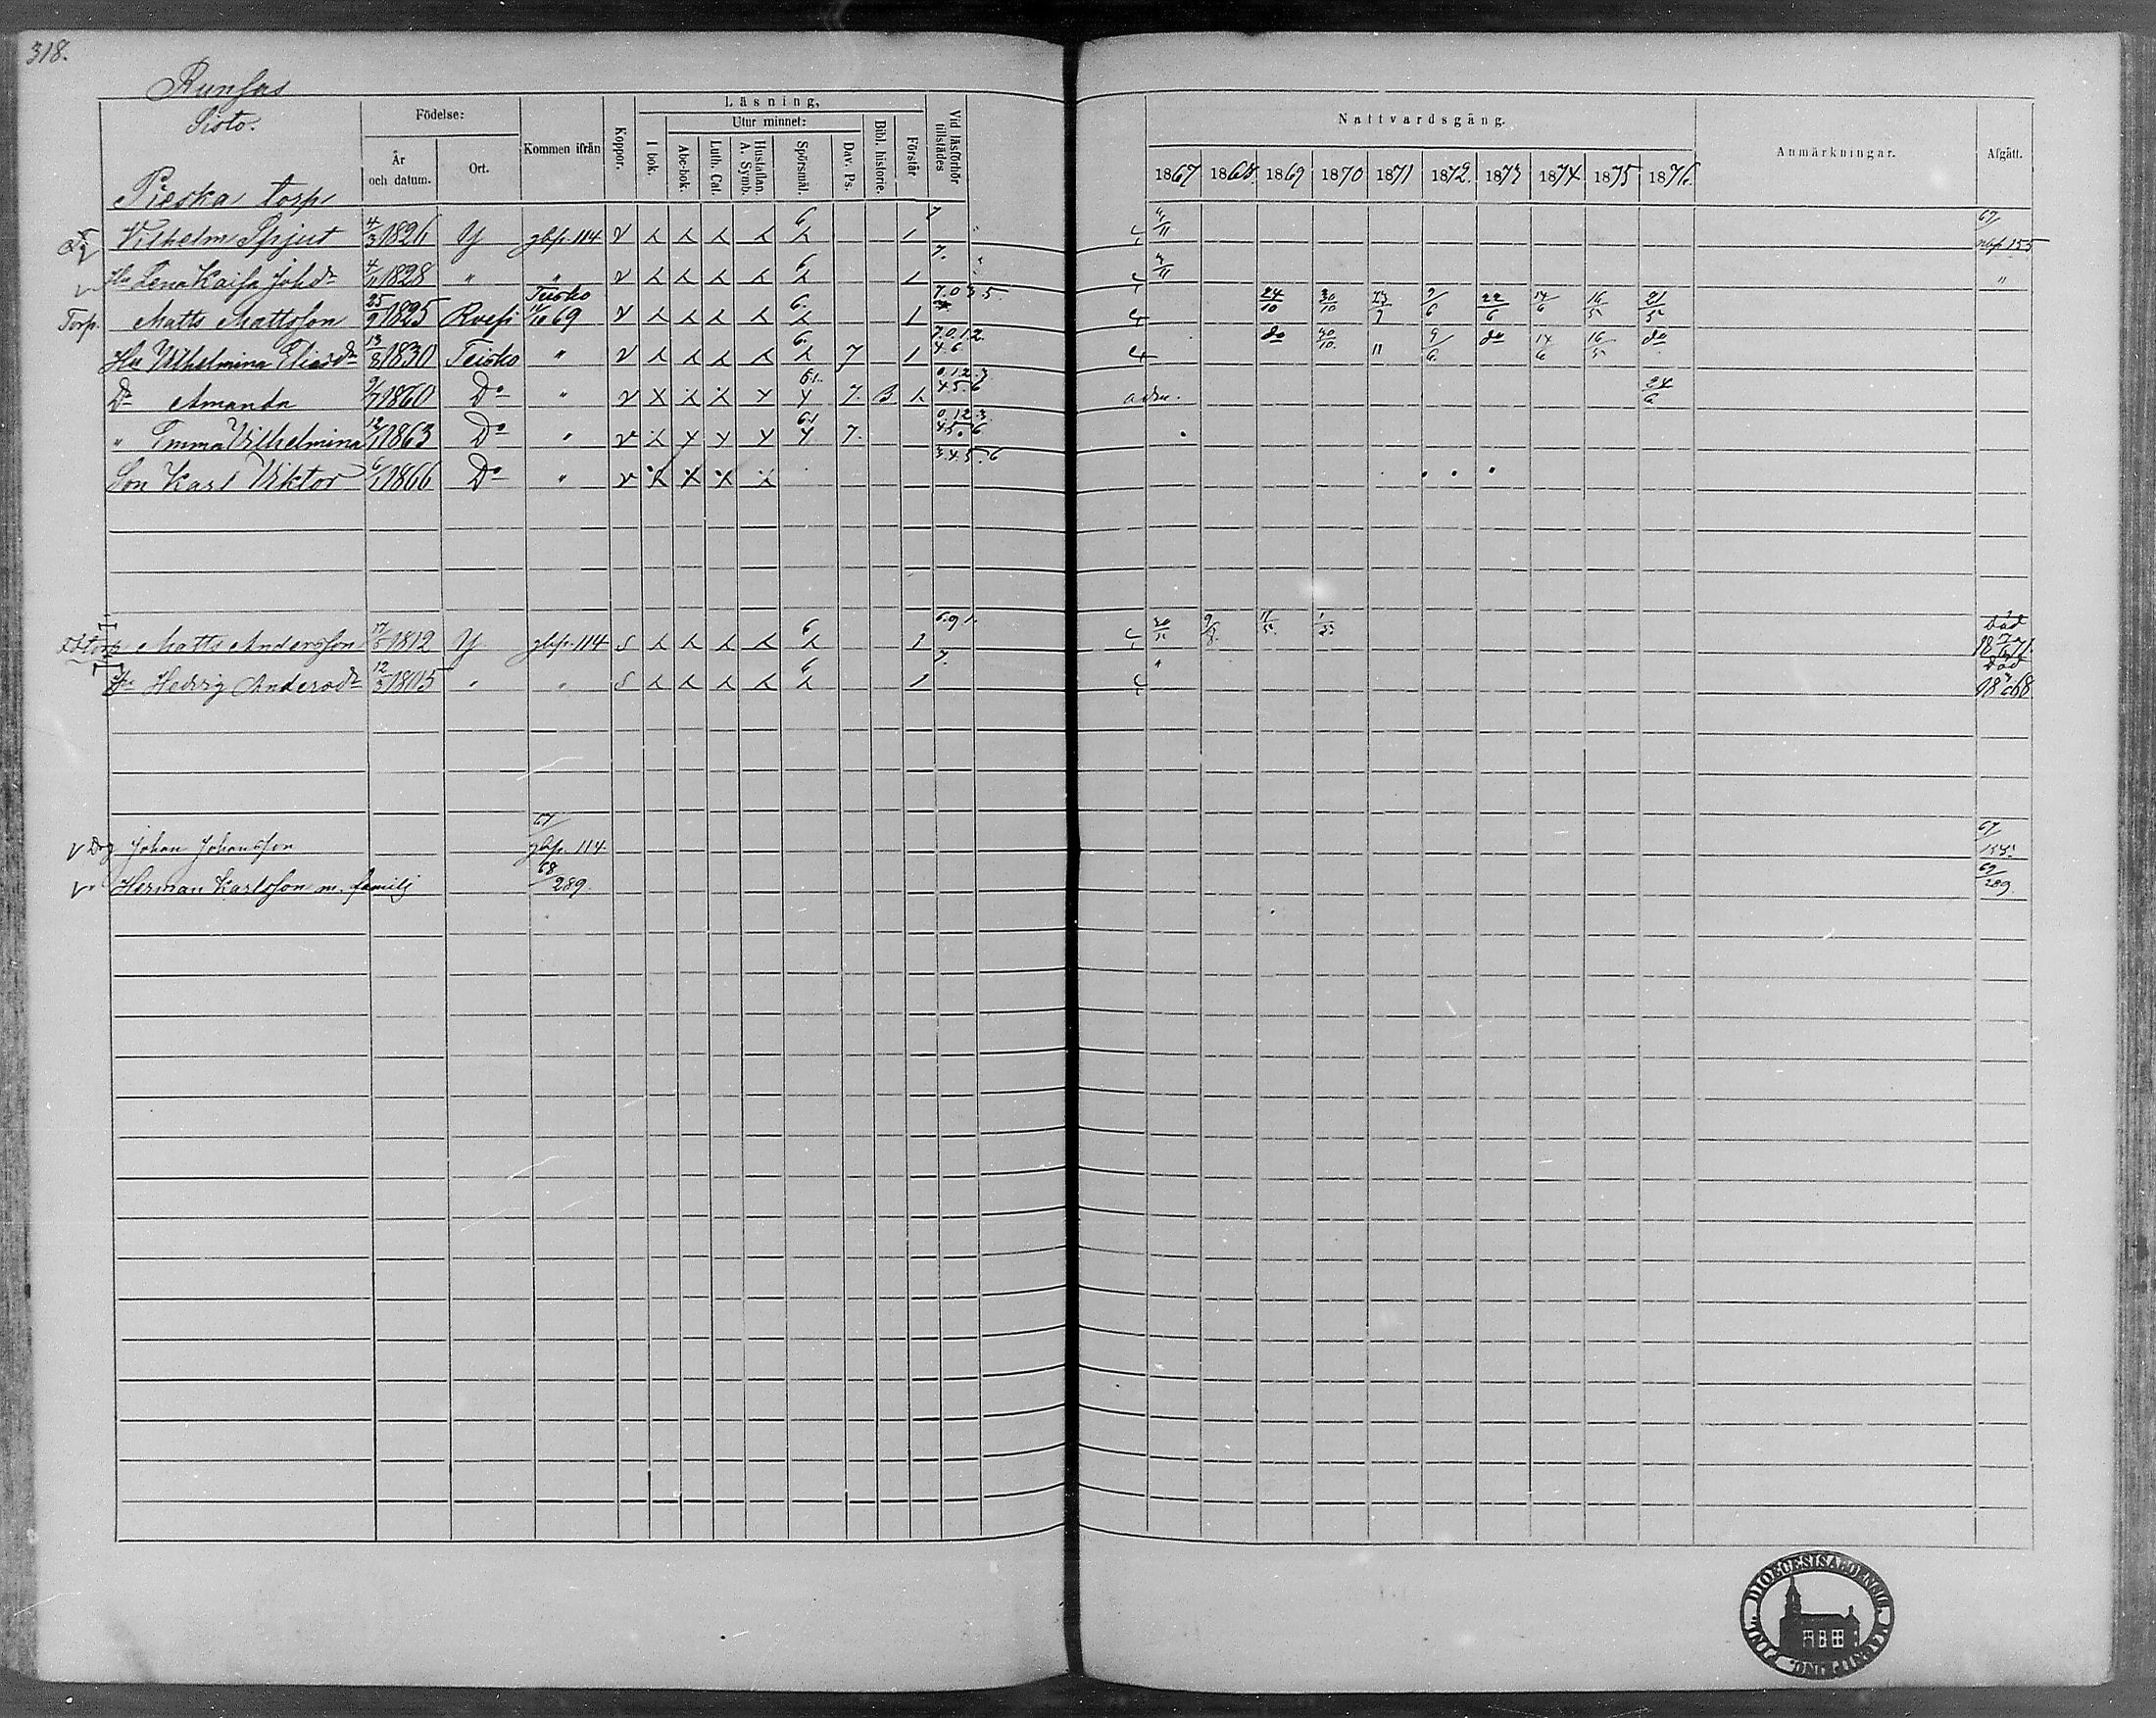 318.
Runsas
Sisto.
Födelse:
Läsning,
Utur minnet:
År och datum.
Ort.
Kommen ifrån
Koppor.
I bok.
Abc-bok.
Luth. Cat.
Hustaflan. A. Symb.
Spörsmål.
Dav. Ps.
Bibl. historie.
Förstår
Vid läsförhör tillstädes
Nattvardsgång.
Anmärkningar.
Afgått.
1867 1868. 1869 1870 1871 1872. 1873 1874 1875 1876.
Pieska torp
Vilhelm Spjut 4/3 1826 Y gbp. 114 v 6 1 7 4/11 67/ nbp 155
Hu Lena Kaisa Johdr 4/11 1828 " " v 6 1 7. 4/11 "
Torp. Matts Mattsson 25/9 1825 Rvesi Teisko 69 v 6. 1 7.0 3.5. 24/10 30/10 23/7 9/6 22/6 14/6 16/5 21/5
Hu Vilhelmina Eliasdr 13/8 1830 Teisko " v 6. 7 1 7.0.1.2. 4.6 do 30/10. 11 9/6 do 14/6 16/5 do
Dr Amanda 9/7 1860 Do " v 6 1. 7. B 0.1.2.3 4.5.6 adm. 24/6
" Emma Vilhelmina 12/1 1863 Do " v 6.1 7. 0.1.2.3 4.5.6
Son Karl Viktor 6/1 1866 Do " v 3.4.5.6
Matts Andersson 17/5 1812 Y gbp. 114 s 6 1 6.9 1. död 1871
Hu Hedvig Andersdr 12/3 1805 " " s 6 1 7. " död 1868
v Drg Johan Johansson 67/ gbp. 114 67/ 155
v Herman Karlsson m. familj 68/289. 69/289.
DIOECESIS ABOENSIS